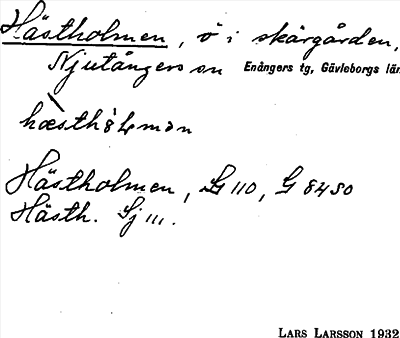 Hästholmen, ö i skärgården,
Njutångers sn Enångers tg, Gävleborgs län
Hästholmen, G 110, G 8450
Hästh. Sj 111.
LARS LARSSON 1932